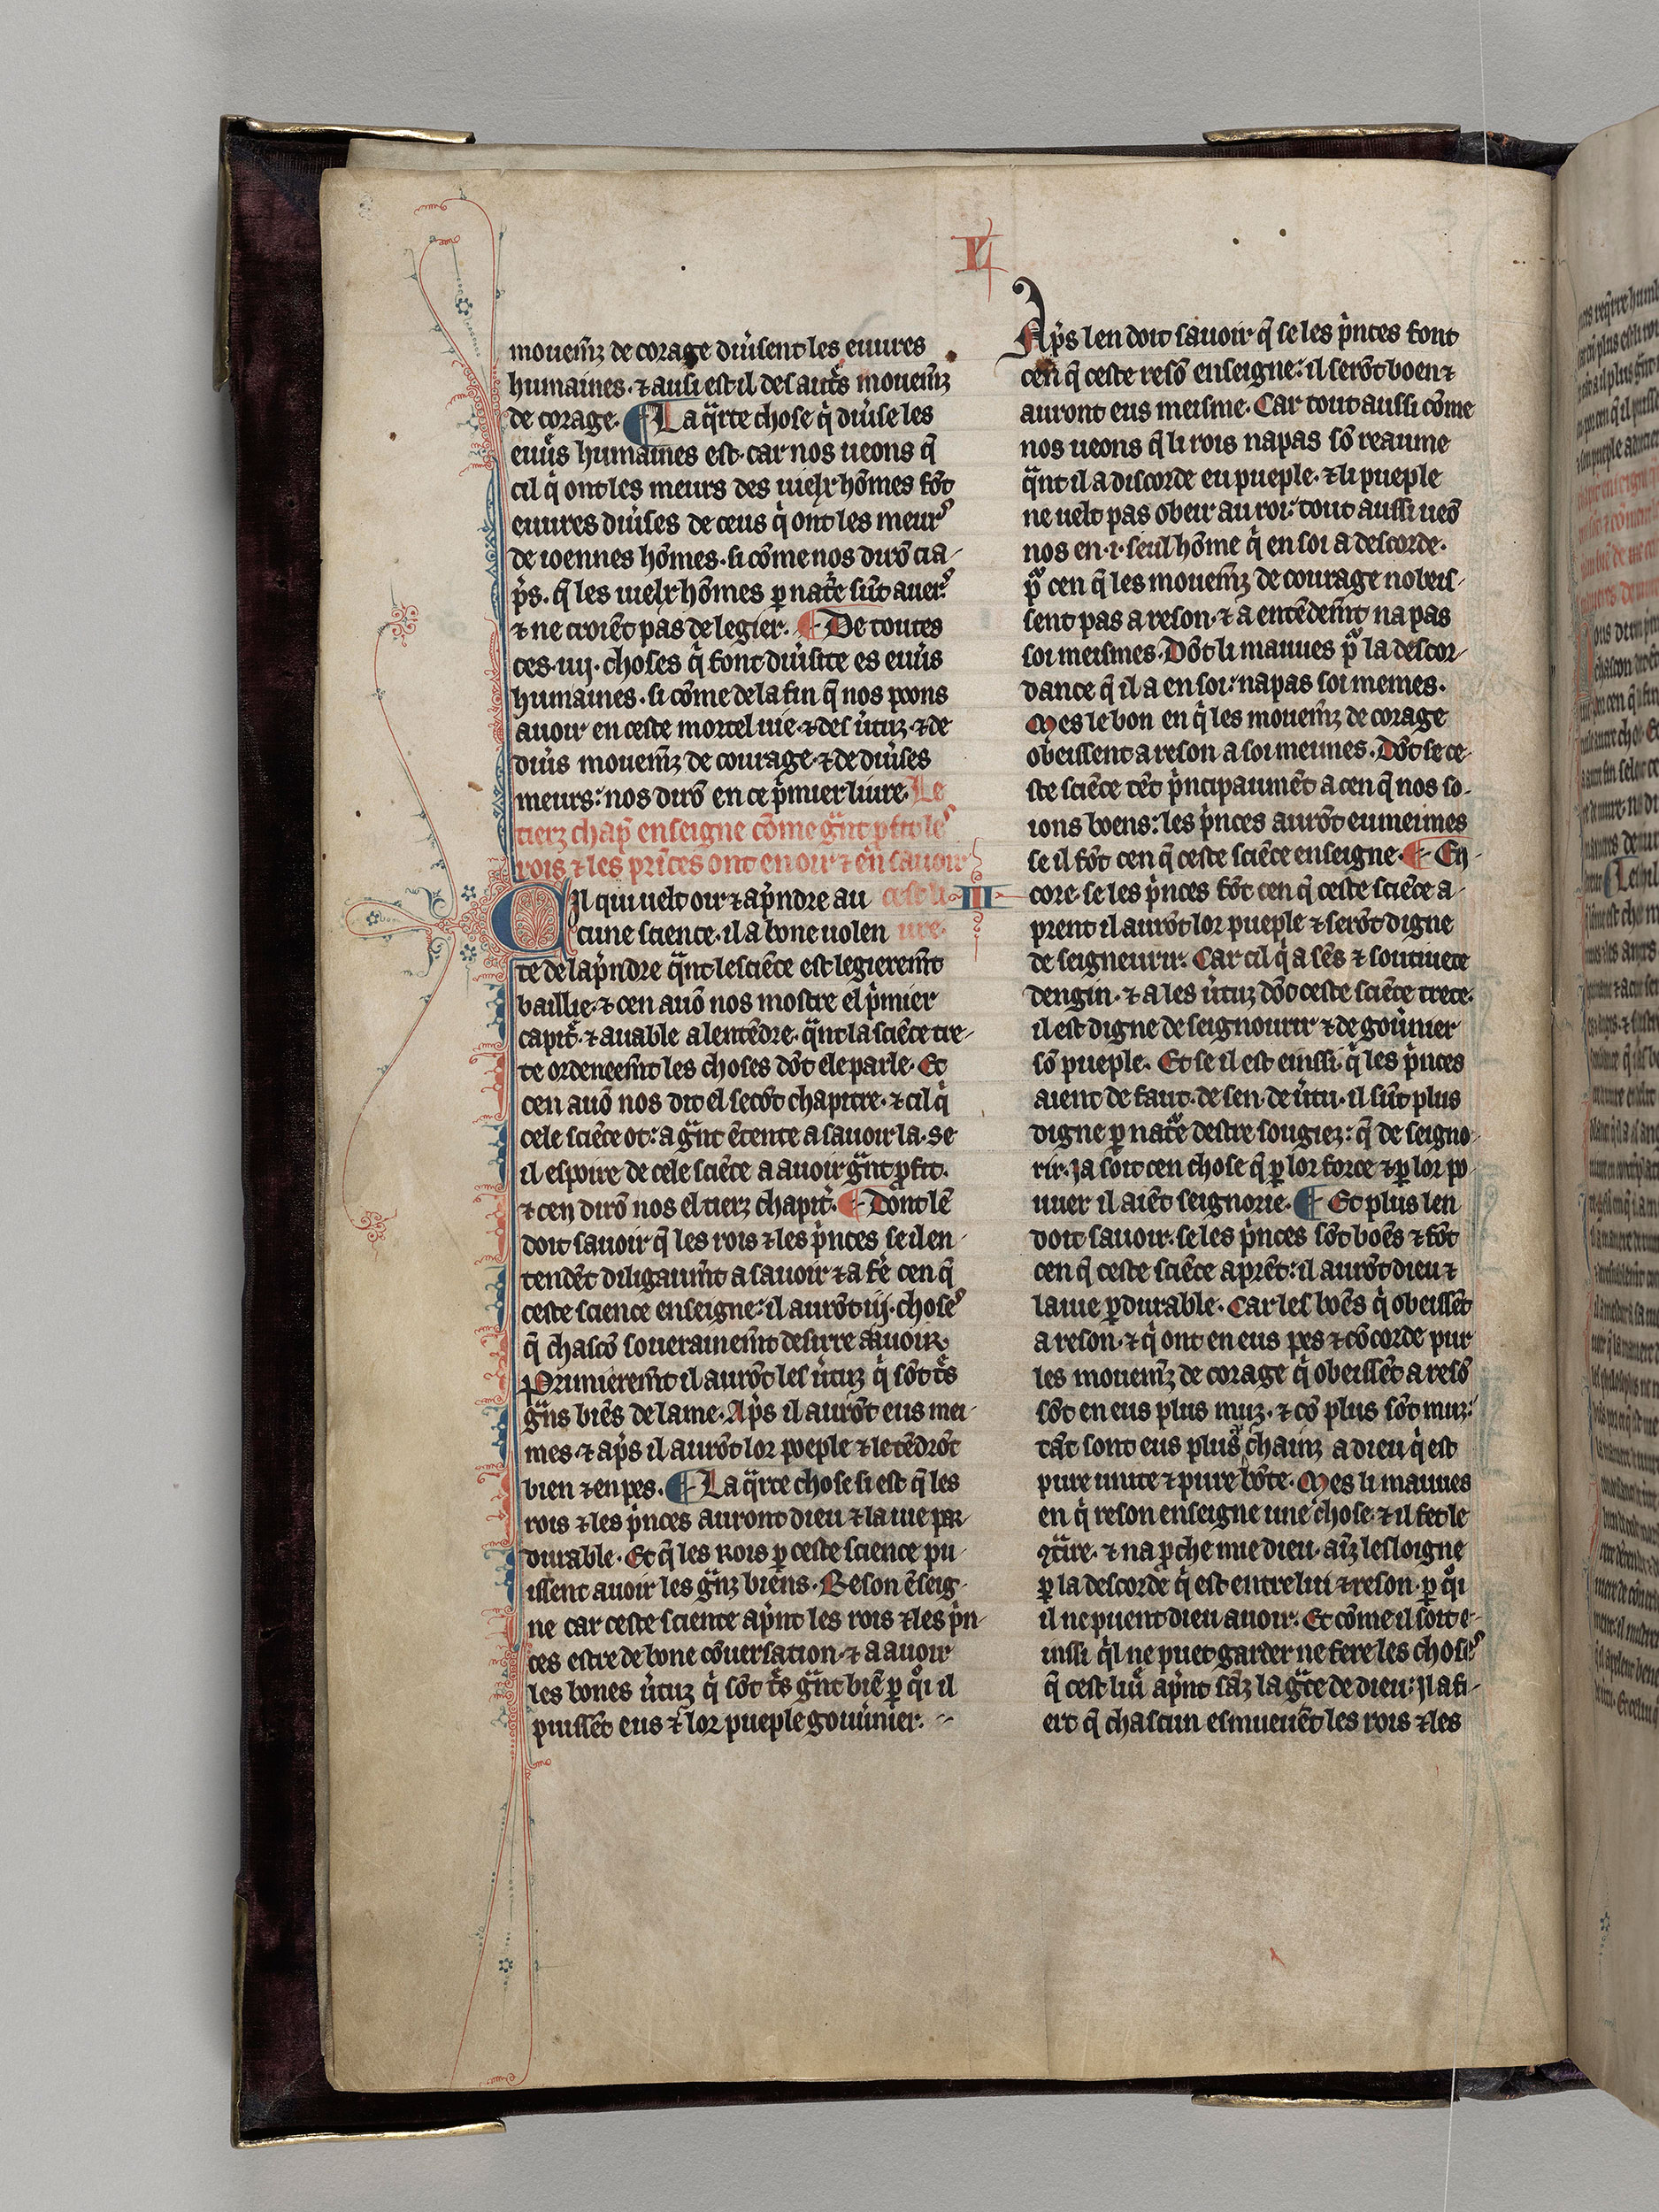 L
mouem̃z de corage diuısent les euures
humaines· ⁊ ausi est il des autᷤs mouem̃z
de corage· ¶ La qᷓrte chose q̇ diuise les
euuᷤs humaines est· car nos ueons q̃
cil q̇ ont les meurs des uielx hõmes fõt
euures diuises de ceus q̇ ont les meurs
de ioennes hõmes· si cõme nos dirõ cia-
p̾s· q̃ les uielx hõmes ꝑ natᷓe sũt auers
⁊ ne croiẽt pas de legier· ¶ De toutes
ces ·iiij· choses q̇ font diuisite es euu᷒s
humaines· si cõme de la fin q̃ nos poons
auoir en ceste mortel uie· ⁊ des u̾tuz· ⁊ de
diu᷒s mouem̃z de courage· ⁊ de diu᷒ses
meurs: nos dirõ en ce p̾mier liure· Le
tierz chap̃ enseigne cõme gᷓnt ꝓfit les
rois ⁊ les princes ont en oir ⁊ en sauoir
Cil qui uelt oir ⁊ ap̾ndre au cest li- III
cune science· il a bone uolen ure·
te de lap̾ndre qᷓnt le sciẽce est legierem̃t
baillie· ⁊ cen auõ nos mostre el p̾mier
capit̾· ⁊ auable a lentẽdre· qᷓnt la sciẽce tre-
te ordeneem̃t les choses dõt ele parle· Et
cen auõ nos dit el secõt chapitre· ⁊ cil q̇
cele sciẽce ot: a gᷓnt ẽtente a sauoir la· se
il espoire de cele sciẽce a auoir gᷓnt ꝓfit·
⁊ cen dirõ nos el tierz chapit̾· ¶ Dont lẽ
doit sauoir q̃ les rois ⁊ les p̾nces se il en-
tendẽt diligaum̃t a sauoir ⁊ a fẽ cen q̃
ceste science enseigne: il aurõt iiij· choses
q̃ chascõ souerainem̃t desirre a auoir·
Primierem̃t il aurõt les u̾tuz q̇ sõt tᷤs
gᷓns biẽs de lame· Ap̾s il aurõt eus mei-
mes· ⁊ ap̾s il aurõt lor poeple ⁊ le tẽdrõt
bien ⁊ en pes· ¶ La qᷓrte chose si est q̃ les
rois ⁊ les p̾nces auront dieu ⁊ la uie par
durable· Et q̃ les Rois ꝑ ceste science pu-
issent auoir les gᷓnz biens· Reson ẽseig-
ne car ceste science ap̾nt les rois ⁊ les p̾n-
ces estre de bone cõuersation· ⁊ a auoir
les bones u̾tuz q̇ sõt tᷤs gᷓnt biẽ ꝑ qͦi il
puissẽt eus ⁊ lor pueple gouu̾nier·
Ap̾s len doit sauoir q̃ se les p̾nces font
cen q̃ ceste resõ enseigne: il serõt boen ⁊
auront eus meisme· Car tout aussi cõme
nos ueons q̃ li rois na pas sõ reaume
qᷓnt il a discorde eu pueple· ⁊ li pueple
ne uelt pas obeir au roi: tout aussi ueõ
nos en ·i· seul hõme q̇ en soi a descorde·
pᷓ cen q̃ les mouem̃z de courage nobeis-
sent pas a reson· ⁊ a entẽdem̃t na pas
soi meismes· Dõt li mauues pᷓ la descor-
dance q̃ il a en soi: na pas soi memes·
Mes le bon en q̇ les mouem̃z de corage
obeissent a reson a soi meimes· Dõt se ce-
ste sciẽce tẽt p̾ncipaumẽt a cen q̃ nos so-
ions boens: les p̾nces aurõt eu meimes
se il fõt cen q̃ ceste sciẽce enseigne· ¶ En-
core· se les p̾nces fõt cen q̃ ceste sciẽce a-
prent il aurõt lor pueple ⁊ serõt digne
de seigneurir· Car cil q̇ a sẽs ⁊ soutiuete
dengin· ⁊ a les u̾tuz dõt ceste sciẽce trete·
il est digne de seignourir ⁊ de gou̾nier
sõ pueple· Et se il est einssi q̇ les p̾nces
aient de faut· de sen· de u̾tu· il sũt plus
digne ꝑ natᷓe destre sougiez: q̃ de seigno-
rir· Ja soit cen chose q̃ ꝑ lor force ⁊ ꝑ lor po
uuer il aiẽt seignorie· ¶ Et plus len
doit sauoir· se les p̾nces sõt boẽs ⁊ fõt
cen q̃ ceste sciẽce aprẽt: il aurõt dieu ⁊
la uie ꝑdurable· Car les boẽs q̇ obeissẽt
a reson· ⁊ q̇ ont en eus pes ⁊ cõcorde pur
les mouem̃z de corage q̇ obeissẽt a resõ
sõt en eus plus muz· ⁊ cõ plus sõt muz:
tãt sont eus plus ꝓchainz a dieu q̇ est
pure unite ⁊ pure bõte· Mes li mauues
en q̇ reson enseigne une chose· ⁊ il fet le
ꝯtᷓire· ⁊ na ꝓche mie dieu· aĩz lesloigne
ꝑ la descorde q̇ est entre lui ⁊ reson· ꝑ qͦi
il ne puent dieu auoir· Et cõme il soit e-
inssi q̇l ne puet garder ne fere les choses
q̃ cest liũ ap̾nt sãz la gᷓce de dieu: Il afi-
ert q̃ chascun esmueuẽt les rois ⁊ les